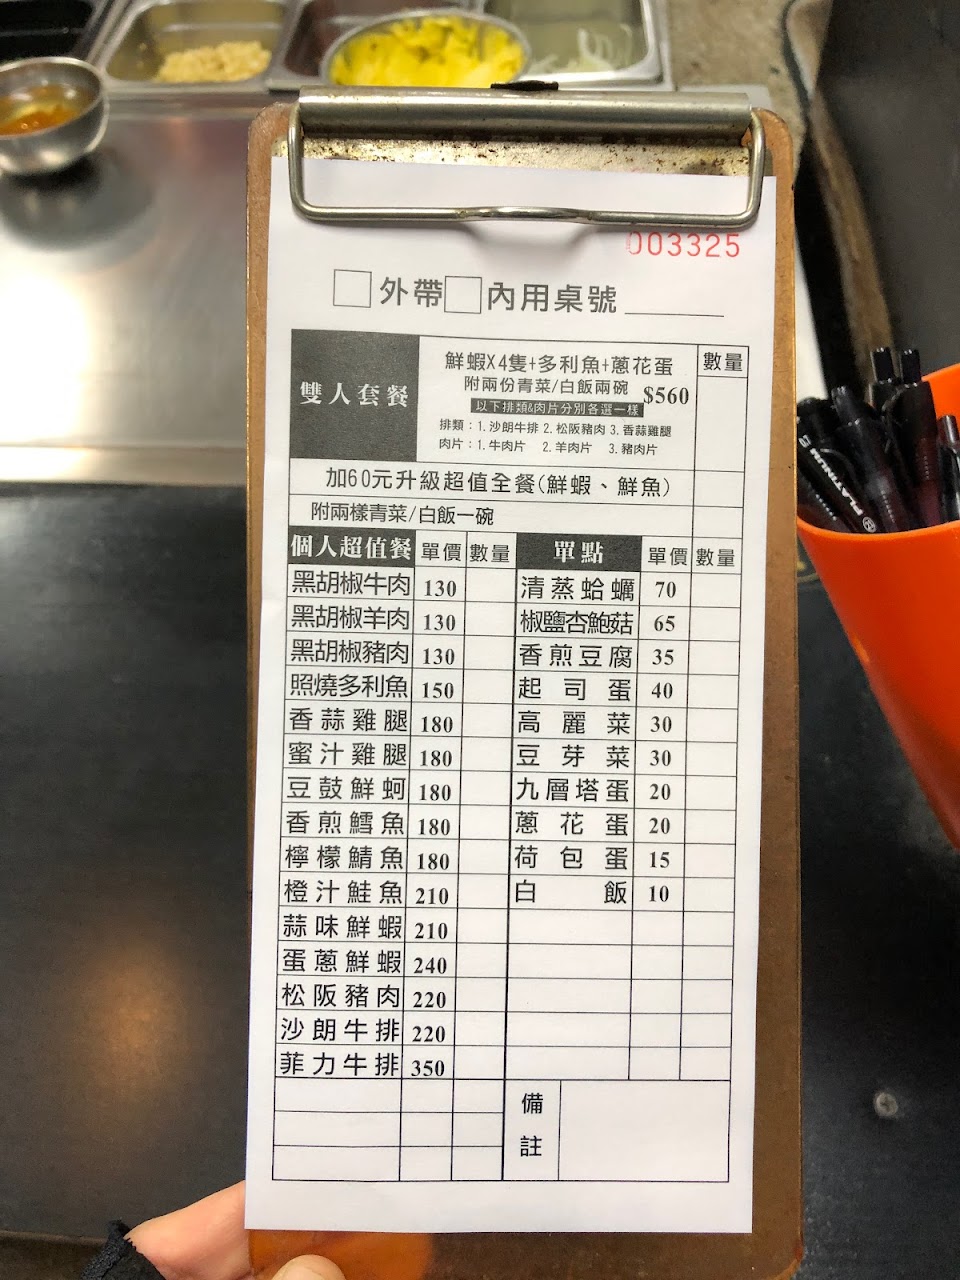 003325
□外帶□內用桌號
雙人套餐
鮮蝦X4隻+多利魚+蔥花蛋
附兩份青菜/白飯兩碗
$560
以下排類&肉片分別各選一樣
排類:1.沙朗牛排 2.松阪豬肉 3.香蒜雞腿
肉片:1.牛肉片 2.羊肉片 3.豬肉片
數量
加60元升級超值全餐(鮮蝦、鮮魚)
附兩樣青菜/白飯一碗
個人超值餐 單價 數量
黑胡椒牛肉 130
黑胡椒羊肉 130
黑胡椒豬肉 130
照燒多利魚 150
香蒜雞腿 180
蜜汁雞腿 180
豆鼓鮮蚵 180
香煎鱈魚 180
檸檬鯖魚 180
橙汁鮭魚 210
蒜味鮮蝦 210
蛋蔥鮮蝦 240
松阪豬肉 220
沙朗牛排 220
菲力牛排 350
單點 單價 數量
清蒸蛤蠣 70
椒鹽杏鮑菇 65
香煎豆腐 35
起司蛋 40
高麗菜 30
豆芽菜 30
九層塔蛋 20
蔥花蛋 20
荷包蛋 15
白飯 10
備註
PLATINUM